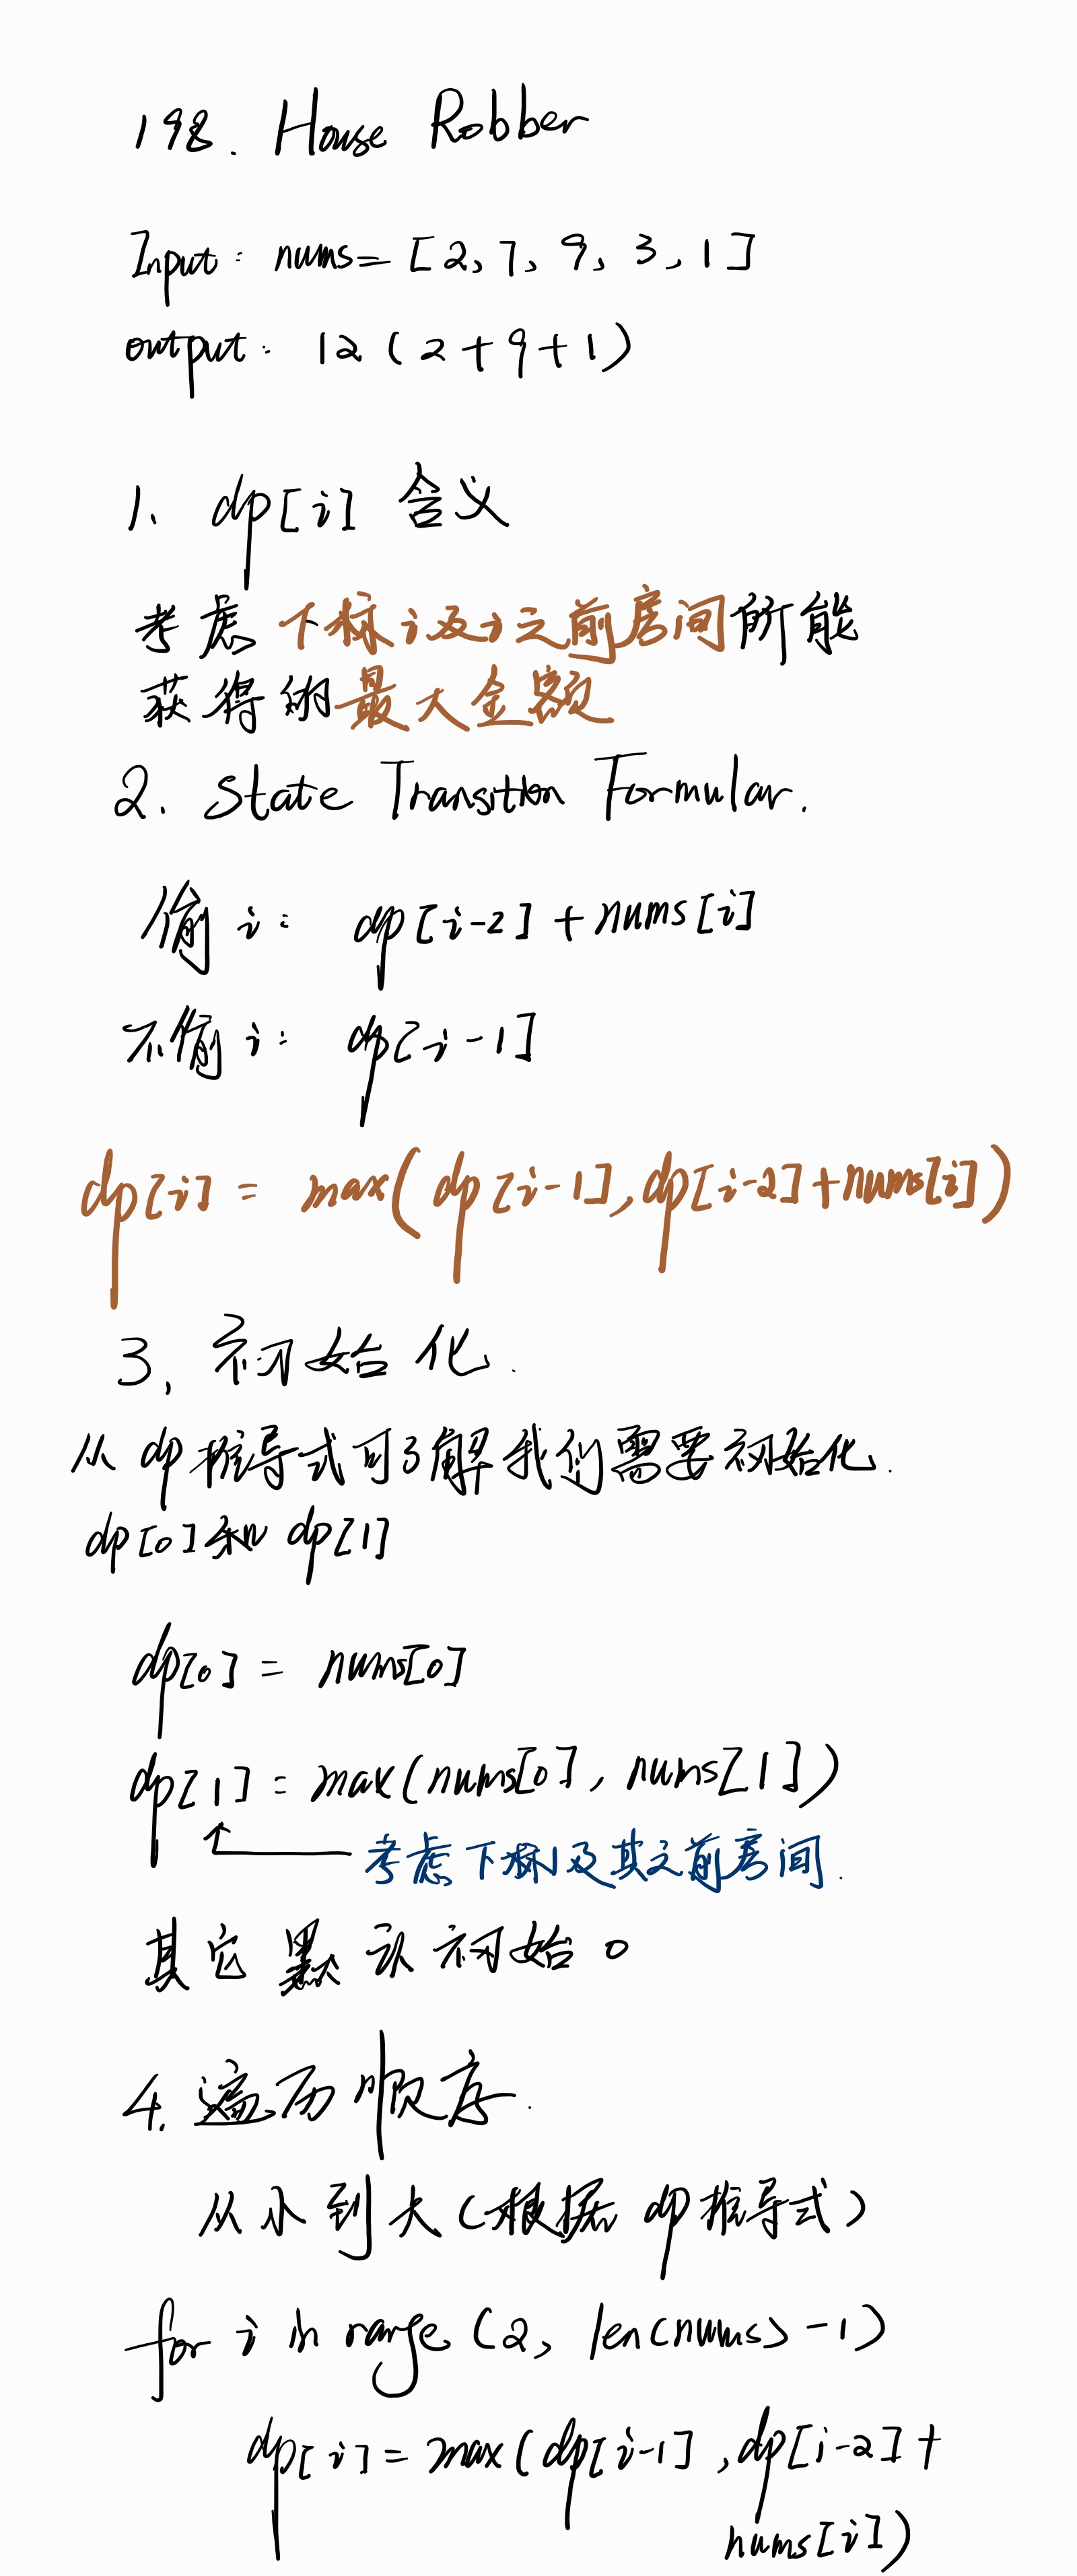 198. House Robber
Input: nums=[2,7,9,3,1]
output: 12(2+9+1)
1、dp[i] 含义
考虑下标i及i之前房间所能
获得的最大金额
2. State Transition Formular.
偷i: dp[i-2]+nums[i]
不偷i: dp[i-1]
dp[i] = max(dp[i-1],dp[i-2]+nums[i])
3, 初始化.
从dp推导式可了解我们需要初始化.
dp[0]和dp[1]
dp[0] = nums[0]
dp[1] = max(nums[0], nums[1])
考虑下标1及其之前房间.
其它默认初始0
4. 遍历顺序.
从小到大(根据dp推导式)
for i in range(2, len(nums)-1)
dp[i] = max(dp[i-1],dp[i-2]+
nums[i])